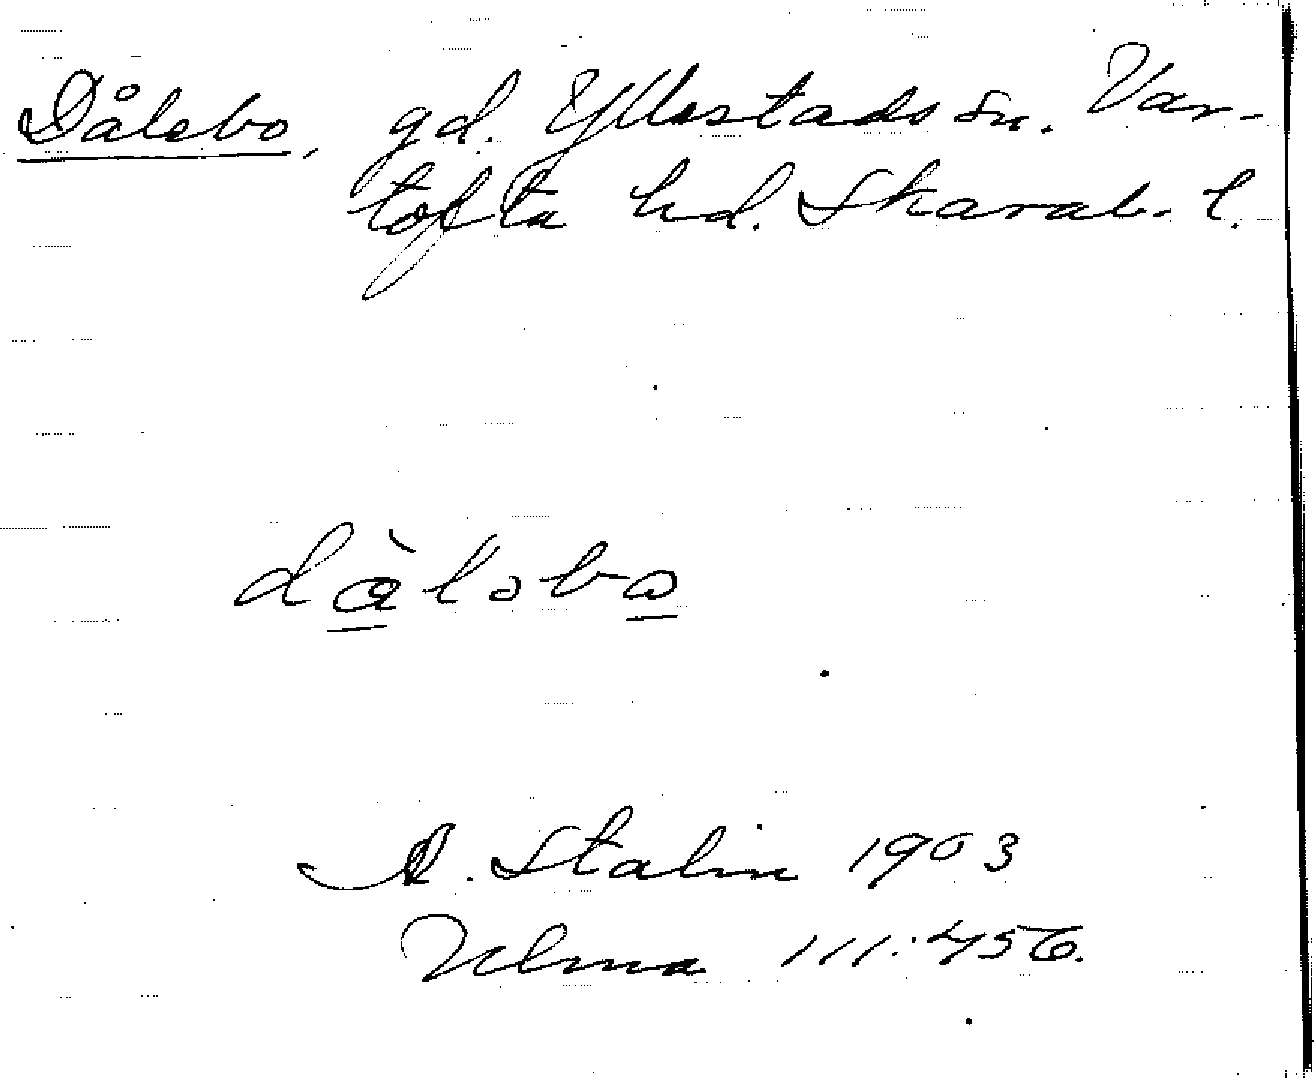 Dålebo, gd. Yllestads sn. Var-
tofta hd. Skarab. l.
dàləbo
A. Stalin 1903
Ulma 111:456.